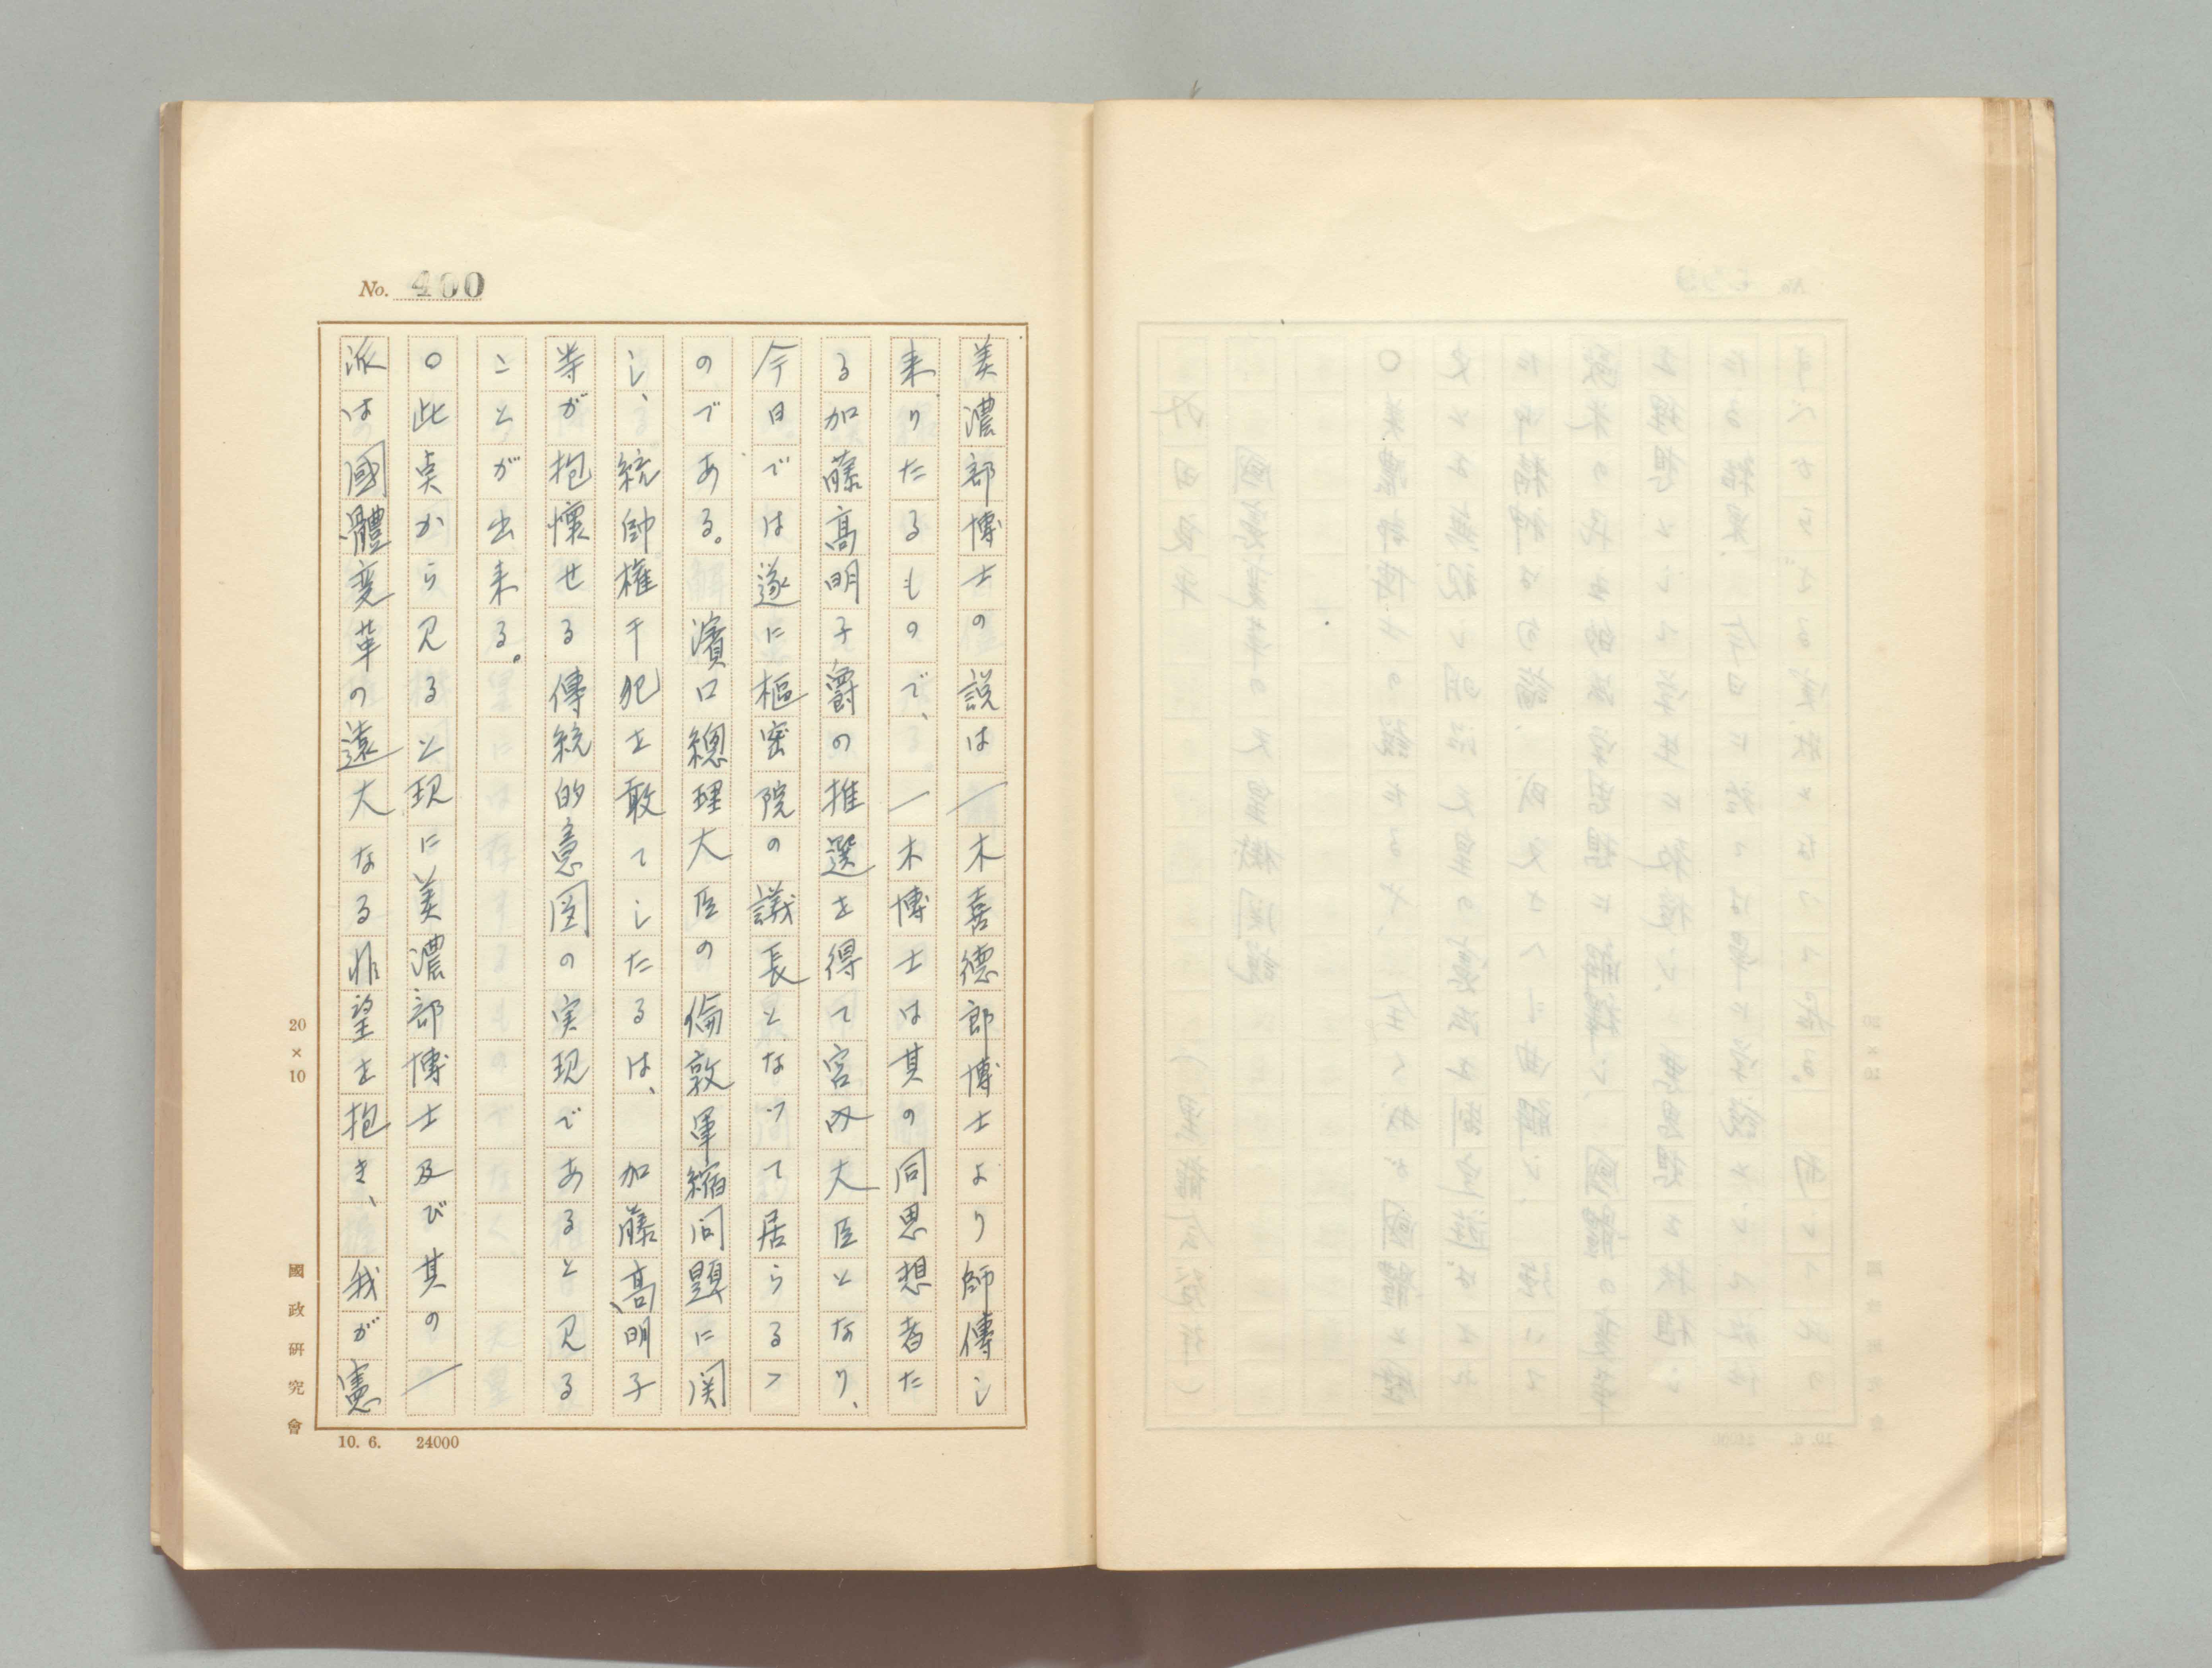 No. 400
美濃部博士の説は一木喜德郎博士より師傳し
来りたるもので、一木博士は其の同思想者た
る加藤高明子爵の推選を得て宮内大臣となり、
今日では遂に樞密院の議長となつて居らるゝ
のである。濱口總理大臣の倫敦軍縮问題に関
し、統帥權干犯を敢てしたるは、加藤高明子
等が抱懷せる傳統的意図の実現であると見る
ことが出来る。
○此点から見ると現に美濃部博士及び其の一
派は國體変革の遠大なる非望を抱き、我が憲
20×10
國政研究會
10. 6. 24000